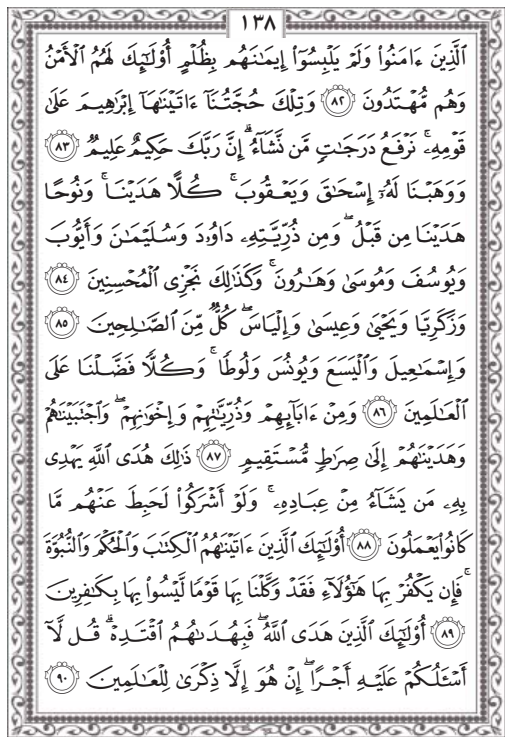 ١٣٨
الَّذِينَ ءَامَنُوا۟ وَلَمْ يَلْبِسُوٓا۟ إِيمَـٰنَهُم بِظُلْمٍ أُو۟لَـٰٓئِكَ لَهُمُ الْأَمْنُ
وَهُم مُّهْتَدُونَ ٨٢ وَتِلْكَ حُجَّتُنَآ ءَاتَيْنَـٰهَآ إِبْرَٰهِيمَ عَلَىٰ
قَوْمِهِۦ ۚ نَرْفَعُ دَرَجَـٰتٍ مَّن نَّشَآءُ ۗ إِنَّ رَبَّكَ حَكِيمٌ عَلِيمٌ ٨٣
وَوَهَبْنَا لَهُۥٓ إِسْحَـٰقَ وَيَعْقُوبَ ۚ كُلًّا هَدَيْنَا ۚ وَنُوحًا
هَدَيْنَا مِن قَبْلُ ۖ وَمِن ذُرِّيَّتِهِۦ دَاوُۥدَ وَسُلَيْمَـٰنَ وَأَيُّوبَ
وَيُوسُفَ وَمُوسَىٰ وَهَـٰرُونَ ۚ وَكَذَٰلِكَ نَجْزِى الْمُحْسِنِينَ ٨٤
وَزَكَرِيَّا وَيَحْيَىٰ وَعِيسَىٰ وَإِلْيَاسَ ۖ كُلٌّ مِّنَ الصَّـٰلِحِينَ ٨٥
وَإِسْمَـٰعِيلَ وَالْيَسَعَ وَيُونُسَ وَلُوطًا ۚ وَكُلًّا فَضَّلْنَا عَلَى
الْعَـٰلَمِينَ ٨٦ وَمِنْ ءَابَآئِهِمْ وَذُرِّيَّـٰتِهِمْ وَإِخْوَٰنِهِمْ ۖ وَاجْتَبَيْنَـٰهُمْ
وَهَدَيْنَـٰهُمْ إِلَىٰ صِرَٰطٍ مُّسْتَقِيمٍ ٨٧ ذَٰلِكَ هُدَى اللَّهِ يَهْدِى
بِهِۦ مَن يَشَآءُ مِنْ عِبَادِهِۦ ۚ وَلَوْ أَشْرَكُوا۟ لَحَبِطَ عَنْهُم مَّا
كَانُوا۟ يَعْمَلُونَ ٨٨ أُو۟لَـٰٓئِكَ الَّذِينَ ءَاتَيْنَـٰهُمُ الْكِتَـٰبَ وَالْحُكْمَ وَالنُّبُوَّةَ
ۚ فَإِن يَكْفُرْ بِهَا هَـٰٓؤُلَآءِ فَقَدْ وَكَّلْنَا بِهَا قَوْمًا لَّيْسُوا۟ بِهَا بِكَـٰفِرِينَ
٨٩ أُو۟لَـٰٓئِكَ الَّذِينَ هَدَى اللَّهُ ۖ فَبِهُدَىٰهُمُ اقْتَدِهْ ۗ قُل لَّآ
أَسْـَٔلُكُمْ عَلَيْهِ أَجْرًا ۖ إِنْ هُوَ إِلَّا ذِكْرَىٰ لِلْعَـٰلَمِينَ ٩٠